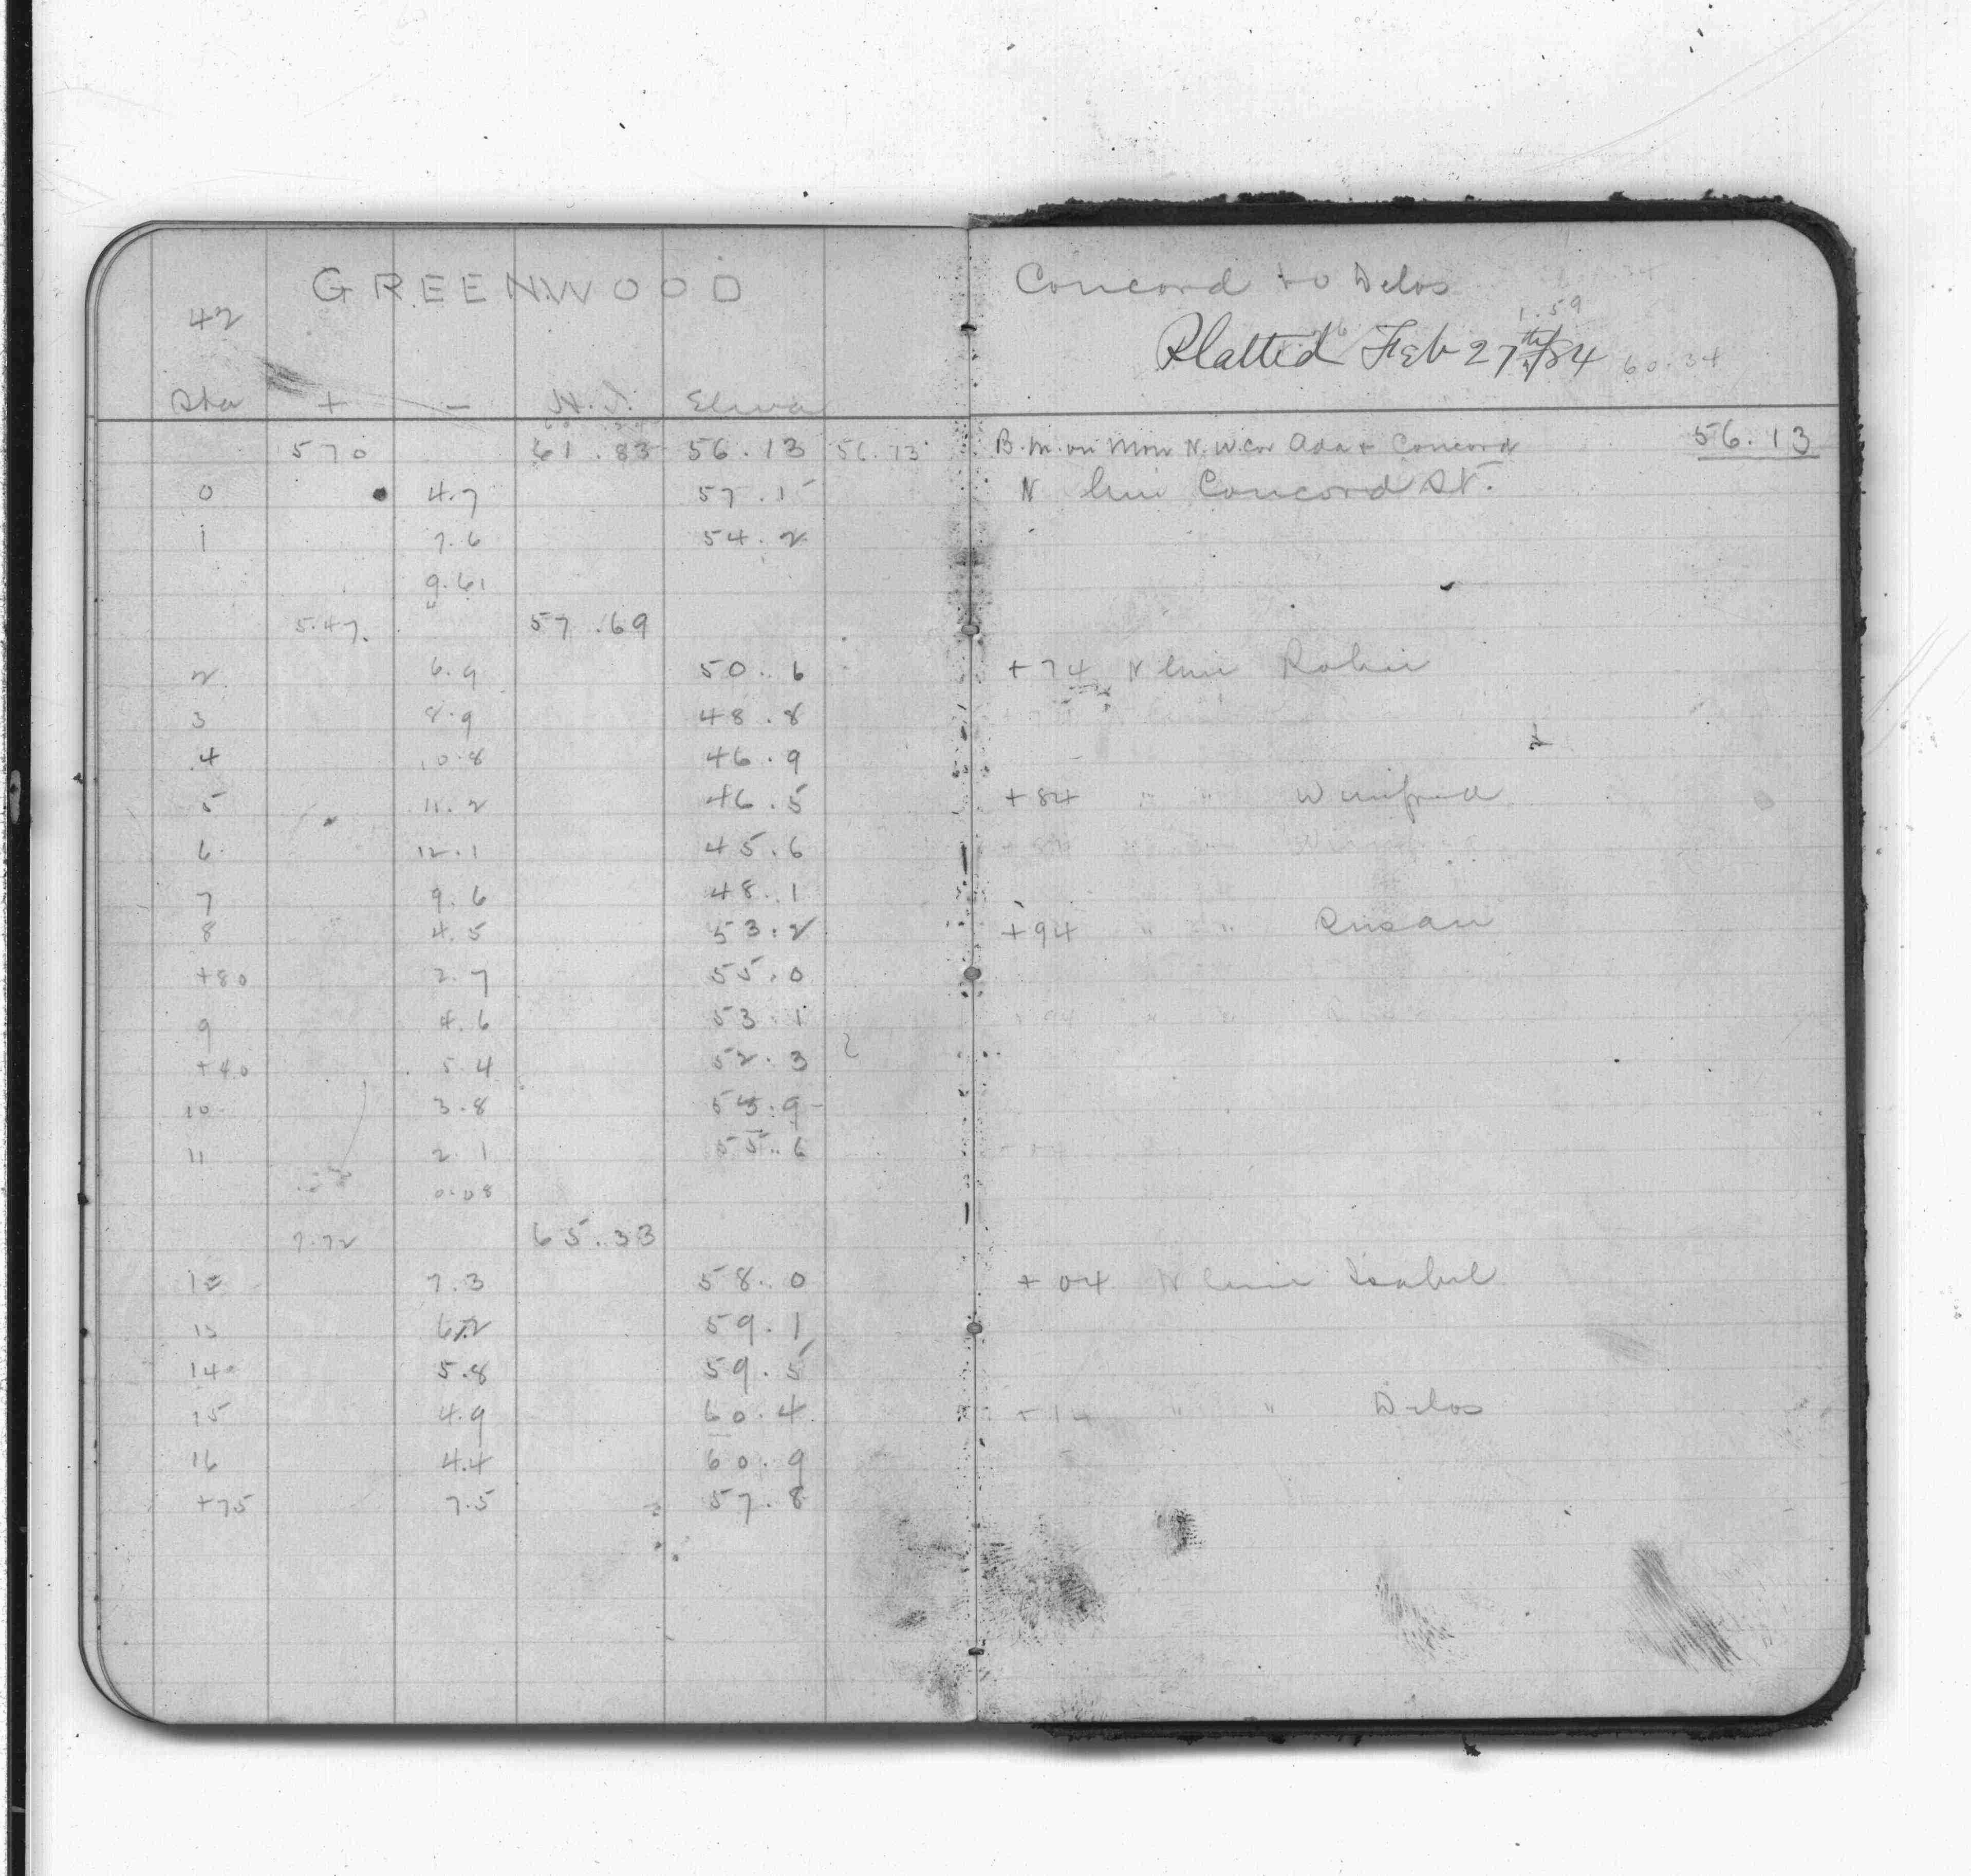 GREENWOOD
42
Sta + - H.I. Eleva
570 61.83 56.13 56.13
0 4.7 57.1
1 7.6 54.2
9.61
5.47 57.69
2 6.9 50.6
3 8.9 48.8
4 10.8 46.9
5 11.2 46.5
6 12.1 45.6
7 9.6 48.1
8 4.5 53.2
+80 2.7 55.0
9 4.6 53.1
+40 5.4 52.3
10 3.8 53.9
11 2.1 55.6
0.08
7.72 65.33
12 7.3 58.0
13 6.2 59.1
14 5.8 59.5
15 4.9 60.4
16 4.4 60.9
+75 7.5 57.8
Concord to Delos
1.59
Platted Feb 27th/84 60.34
B.M. on Mon N.W. Cor Ada & Concord 56.13
N line Concord St.
+74 N line Robie
+84 " " Winifred
+94 " " Susan
+04 N line Isabel
+14 " " Delos